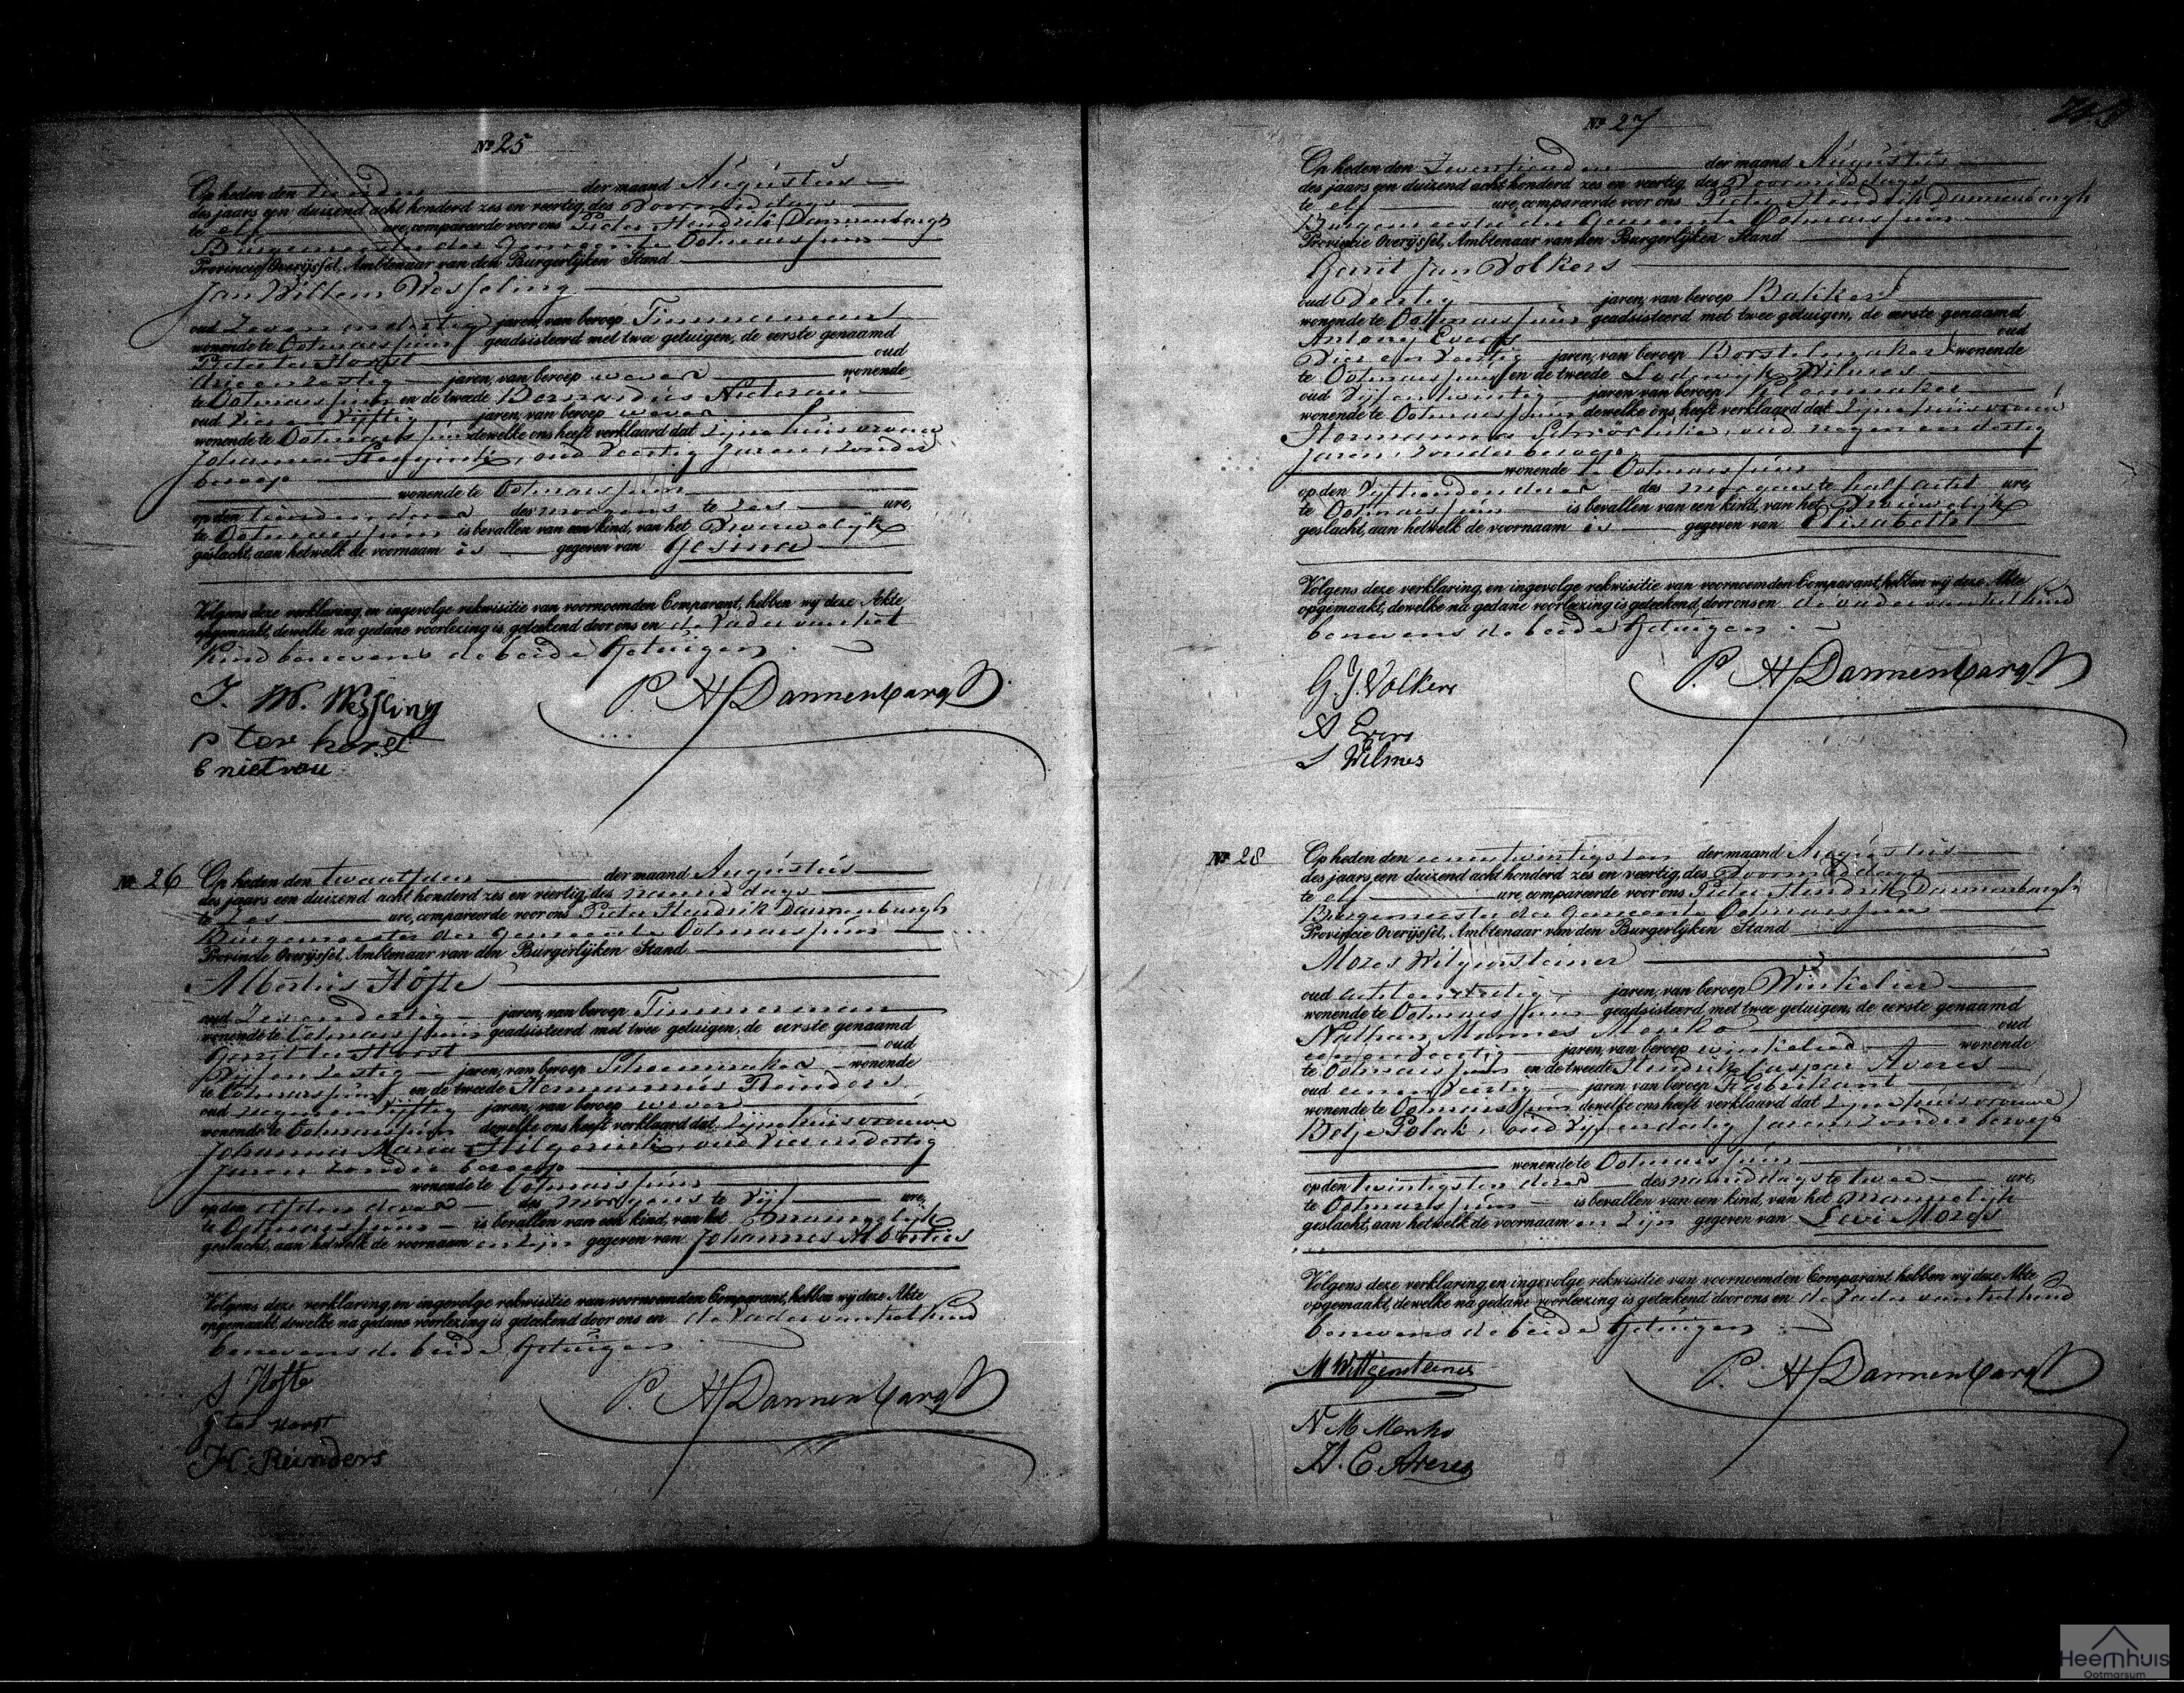 Nº 25
Op heden den tienden der maand Augustus
des jaars een duizend acht honderd zes en veertig, des Voormiddags
te elf ure, compareerde voor ons Pieter Hendrik Dannenbargh
Burgemeester der Gemeente Ootmarssum
Provincie Overijssel, Ambtenaar van den Burgerlijken Stand
Jan Willem Wesseling
oud Zeven en dertig jaren, van beroep Timmerman
wonende te Ootmarssum geadsisteerd met twee getuigen, de eerste genaamd
Pieter ter Horst oud
drie en zestig jaren, van beroep wever wonende
te Ootmarssum en de tweede Bernardus
oud Vier en Vijftig jaren, van beroep wever
wonende te Ootmarssum dewelke ons heeft verklaard dat zijne huisvrouw
Johanna oud Veertig Jaren, zonder
beroep
wonende te Ootmarssum
op den tienden dezer des morgens te zes ure,
te Ootmarssum is bevallen van een kind, van het Vrouwelijk
geslacht, aan hetwelk de voornaam is gegeven van Gesina
Volgens deze verklaring, en ingevolge rekwisitie van voornoemden Comparant, hebben wij deze Akte
opgemaakt, dewelke na gedane voorlezing is geteekend door ons en de Vader van het
Kind benevens de beide Getuigen
J. W. Wessling
P. H. Dannenbargh
P ter horst
B nietrau
Nº 26
Op heden den twaalfden der maand Augustus
des jaars een duizend acht honderd zes en veertig, des namiddags
te zes ure, compareerde voor ons Pieter Hendrik Dannenbargh
Burgemeester der Gemeente Ootmarssum
Provincie Overijssel, Ambtenaar van den Burgerlijken Stand
Albertus Höfte
oud Zes en dertig jaren, van beroep Timmerman
wonende te Ootmarssum geadsisteerd met twee getuigen, de eerste genaamd
Gerrit ter Horst oud
Vijf en zestig jaren, van beroep Schoenmaker wonende
te Ootmarssum en de tweede Hermannus Reinders
oud negen en Vijftig jaren, van beroep wever
wonende te Ootmarssum dewelke ons heeft verklaard dat zijne huisvrouwe
Johanna Maria Hilgerink, oud Vier en dertig
Jaren zonder beroep
wonende te Ootmarssum
op den elfden dezer des morgens te Vijf ure,
te Ootmarssum is bevallen van een kind, van het mannelijk
geslacht, aan hetwelk de voornaam en zijn gegeven van Johannes Albertus
Volgens deze verklaring, en ingevolge rekwisitie van voornoemden Comparant, hebben wij deze Akte
opgemaakt, dewelke na gedane voorlezing is geteekend door ons en de Vader van het kind
benevens de beide Getuigen
Hofte
P. H. Dannenbargh
G ter Horst
H. Reinders
Nº 27
Op heden den Zeventienden der maand Augustus
des jaars een duizend acht honderd zes en veertig, des Voormiddags
te elf ure, compareerde voor ons Pieter Hendrik Dannenbargh
Burgemeester der Gemeente Ootmarssum
Provincie Overijssel, Ambtenaar van den Burgerlijken Stand
Gerrit Jan Volkers
oud Veertig jaren, van beroep Bakker
wonende te Ootmarssum geadsisteerd met twee getuigen, de eerste genaamd
Antony Evers oud
Vier en Veertig jaren, van beroep Borstelmaker wonende
te Ootmarssum en de tweede Lodewijk Wilmes
oud Vijf en twintig jaren van beroep
wonende te Ootmarssum dewelke ons heeft verklaard dat zijne huisvrouw
Hermanna oud negen en dertig
Jaren, zonder beroep
wonende te Ootmarssum
op den Vijftienden dezer des morgens te half acht ure,
te Ootmarssum is bevallen van een kind, van het Vrouwelijk
geslacht, aan hetwelk de voornaam is gegeven van Elisabeth
Volgens deze verklaring, en ingevolge rekwisitie van voornoemden Comparant, hebben wij deze Akte
opgemaakt, dewelke na gedane voorlezing is geteekend door ons en de vader van het kind
benevens de beide Getuigen
G. J. Volkers
P. H. Dannenbargh
A Evers
L Wilmes
Nº 28
Op heden den eenentwintigsten der maand Augustus
des jaars een duizend acht honderd zes en veertig, des Voormiddags
te elf ure, compareerde voor ons Pieter Hendrik Dannenbargh
Burgemeester der Gemeente Ootmarssum
Provincie Overijssel, Ambtenaar van den Burgerlijken Stand
Mozes Witgensteiner
oud jaren, van beroep Winkelier
wonende te Ootmarssum geadsisteerd met twee getuigen, de eerste genaamd
Nathan Mannes Menko oud
eenen Veertig jaren, van beroep winkelier wonende
te Ootmarssum en de tweede Hendrik Caspar Averes
oud eenen Veertig jaren, van beroep Fabrikant
wonende te Ootmarssum dewelke ons heeft verklaard dat zijne huisvrouwe
Betje Polak, oud Vijf en dertig Jaren, zonder beroep
wonende te Ootmarssum
op den twintigsten dezer des namiddags te twee ure,
te Ootmarssum is bevallen van een kind, van het mannelijk
geslacht, aan hetwelk de voornaam en zijn gegeven van Levi Mozes
Volgens deze verklaring, en ingevolge rekwisitie van voornoemden Comparant, hebben wij deze Akte
opgemaakt, dewelke na gedane voorlezing is geteekend door ons en de Vader van het kind
benevens de beide Getuigen
M Wittgensteiner
P. H. Dannenbargh
N M Menko
H. C. Averes
Heemhuis
Ootmarsum